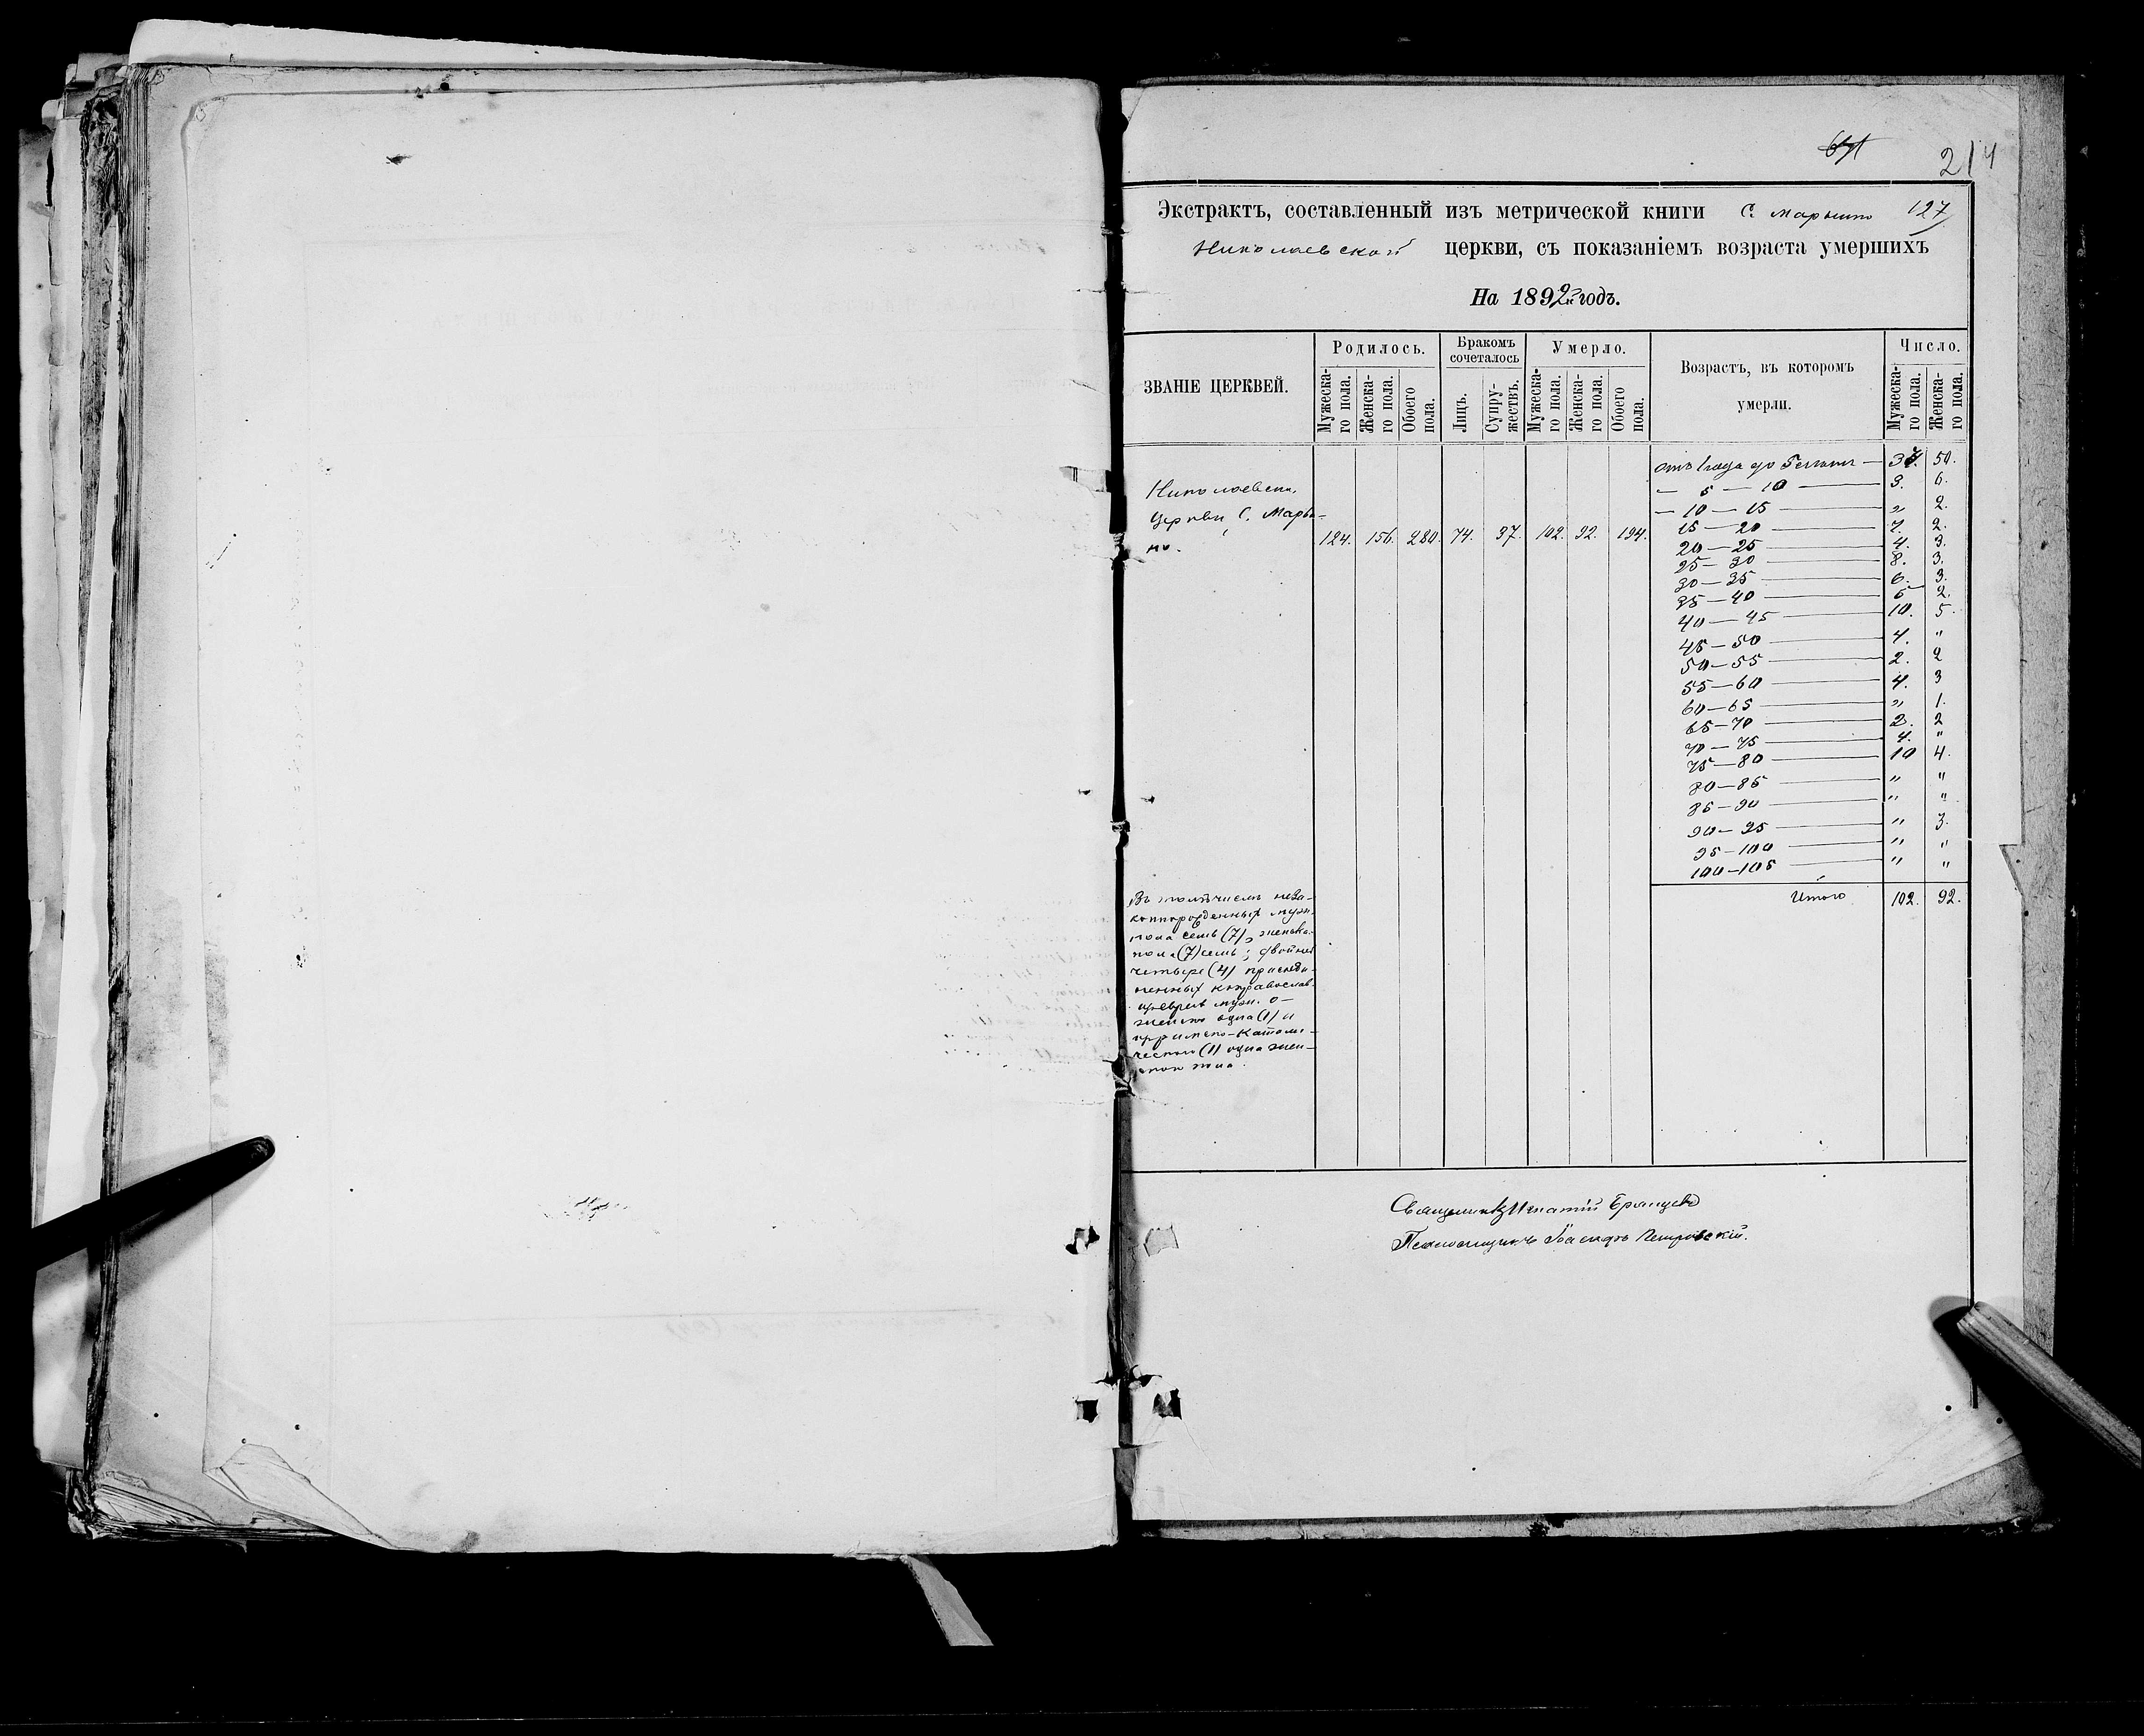 214
Экстрактъ, составленный изъ метрической книги С. Марьино 127
Николаевской церкви, съ показаніемъ возраста умершихъ
На 1892й годъ.
ЗВАНІЕ ЦЕРКВЕЙ.
Родилось.
Бракомъ сочеталось
Умерло.
Возрастъ, въ котором умерли.
Число.
Мужеска-го пола.
Женска-го пола.
Обоего пола.
Лицъ.
Супру-жествъ.
Мужеска-го пола.
Женска-го пола.
Обоего пола.
Мужеска-го пола.
Женска-го пола.
Николаевск.
Церкви С. Марьи-
но. 124. 156. 280. 74. 37. 102. 92. 194.
отъ 1 года до 5 — 50.
— 5 — 10 — 3. 6.
— 10 — 15 — „ 2.
15 — 20 — 7. 2.
20 — 25 — 4. 3.
25 — 30 — 8. 3.
30 — 35 — 6. 3.
35 — 40 — 2.
40 — 45 — 10. 5.
45 — 50 — 4. „
50 — 55 — 2. 2
55 — 60 — 4. 3
60 — 65 — „ 1.
65 — 70 — 2. 2
70 — 75 — 4. „
75 — 80 — 10 4.
80 — 85 — „ „
85 — 90 — „ „
90 — 95 — „ 3.
95 — 100 — „ „
100 — 105 — „ „
Итого 102. 92.
Въ томъ числѣ неза-
коннорожденныхъ муж.
пола семь (7), женска.
пола (7) семь; двойней
четыре (4) присоеди-
ненныхъ къ православ.
муж. 0 —
женско одна (1) и
римско-католи-
ческого (1) одна жен-
пола.
Священникъ Игнатій
Псаломщикъ Петровскій.